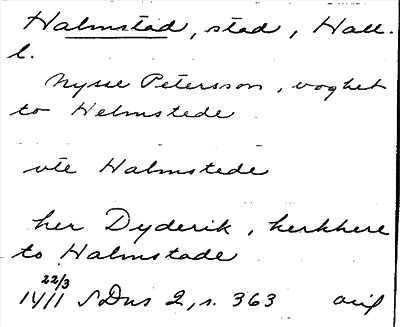 Halmstad, stad, Hall.
l.
Nysse Petersson, voghet
to Helmstede
vte Halmstede
her Dyderik, kerkhere
to Halmstade
22/3
14/11 SDns 2, s. 363